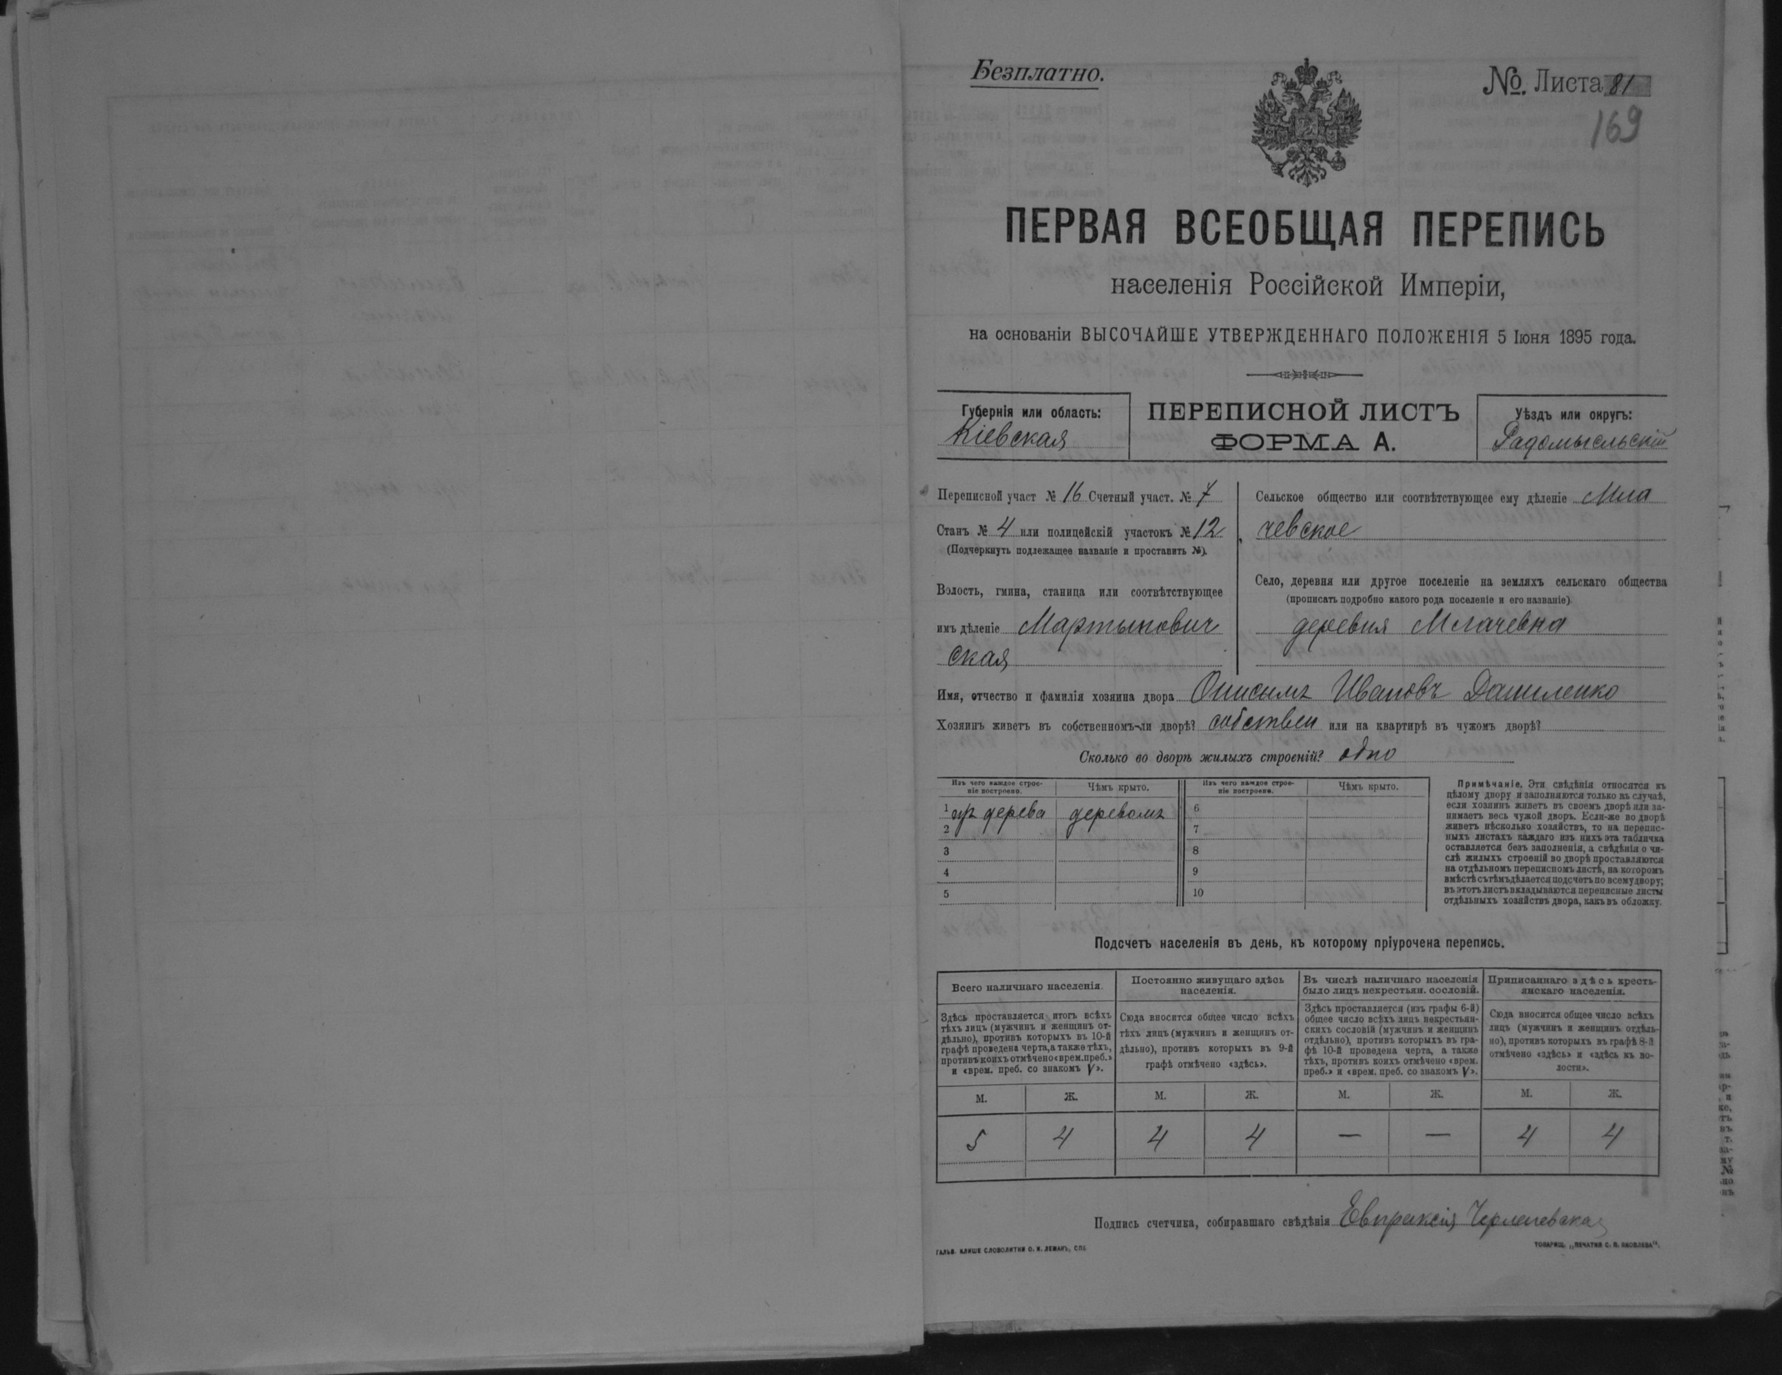 Безплатно.
№. Листа 81
169
ПЕРВАЯ ВСЕОБЩАЯ ПЕРЕПИСЬ
населенія Россійской Имперіи,
на основаніи ВЫСОЧАЙШЕ УТВЕРЖДЕННАГО ПОЛОЖЕНІЯ 5 Іюня 1895 года.
Губернія или область:
Кіевская
ПЕРЕПИСНОЙ ЛИСТЪ
ФОРМА А.
Уѣздъ или округъ:
Радомысльскій
Переписной участ № 16 Счетный участ. № 7
Станъ № 4 или полицейскій участокъ № 12
(Подчеркнуть подлежащее названіе и проставить №).
Волость, гмина, станица или соотвѣтствующее
имъ дѣленіе Мартынович
ская
Сельское общество или соотвѣтствующее ему дѣленіе Мла
чевское
Село, деревня или другое поселеніе на земляхъ сельскаго общества
(прописать подробно какого рода поселеніе и его названіе)
деревня Млачевка
Имя, отчество и фамилія хозяина двора Онисимъ Ивановъ Даниленко
Хозяинъ живетъ въ собственномъ-ли дворѣ? собствен или на квартирѣ въ чужомъ дворѣ?
Сколько во дворѣ жилыхъ строеній? одно
Изъ чего каждое строе-
ніе построено.
Чѣмъ крыто.
Изъ чего каждое строе-
ніе построено.
Чѣмъ крыто.
1 изъ дерева деревомъ 6
2 7
3 8
4 9
5 10
Примѣчаніе. Эти свѣдѣнія относятся къ
цѣлому двору и заполняются только въ случаѣ,
если хозяинъ живетъ въ своемъ дворѣ или за-
нимаетъ весь чужой дворъ. Если-же во дворѣ
живетъ нѣсколько хозяйствъ, то на перепис-
ныхъ листахъ каждаго изъ нихъ эта табличка
оставляется безъ заполненія, а свѣдѣнія о чи-
слѣ жилыхъ строеній во дворѣ проставляются
на отдѣльномъ переписномъ листѣ, на которомъ
вмѣстѣ съ тѣмъ дѣлается подсчетъ по всему двору;
въ этотъ листъ вкладываются переписные листы
отдѣльныхъ хозяйствъ двора, какъ въ обложку.
Подсчетъ населенія въ день, къ которому пріурочена перепись.
Всего наличнаго населенія.
Здѣсь проставляется итогъ всѣхъ
тѣхъ лицъ (мужчинъ и женщинъ от-
дѣльно), противъ которыхъ въ 10-й
графѣ проведена черта, а также тѣхъ,
противъ коихъ отмѣчено «врем. преб.»
и «врем. преб. со знакомъ V».
Постоянно живущаго здѣсь
населенія.
Сюда вносится общее число всѣхъ
тѣхъ лицъ (мужчинъ и женщинъ от-
дѣльно), противъ которыхъ въ 9-й
графѣ отмѣчено «здѣсь».
Въ числѣ наличнаго населенія
было лицъ некрестьян. сословій.
Здѣсь проставляется (изъ графы 6-й)
общее число всѣхъ лицъ некрестьян-
скихъ сословій (мужчинъ и женщинъ
отдѣльно), противъ которыхъ въ гра-
фѣ 10-й проведена черта, а также
тѣхъ, противъ коихъ отмѣчено «врем.
преб.» и «врем. преб. со знакомъ V».
Приписаннаго здѣсь кресть-
янскаго населенія.
Сюда вносится общее число всѣхъ
лицъ (мужчинъ и женщинъ отдѣль-
но), противъ которыхъ въ графѣ 8-й
отмѣчено «здѣсь» и «здѣсь въ во-
лости».
М. Ж. М. Ж. М. Ж. М. Ж.
5 4 4 4 — — 4 4
Подпись счетчика, собиравшаго свѣдѣнія Евпраксія
ГАЛЬВ. КЛИШЕ СЛОВОЛИТНИ О. И. ЛЕМАНЪ, СПБ
ТОВАРИЩ. „ПЕЧАТНЯ С. П. ЯКОВЛЕВА".